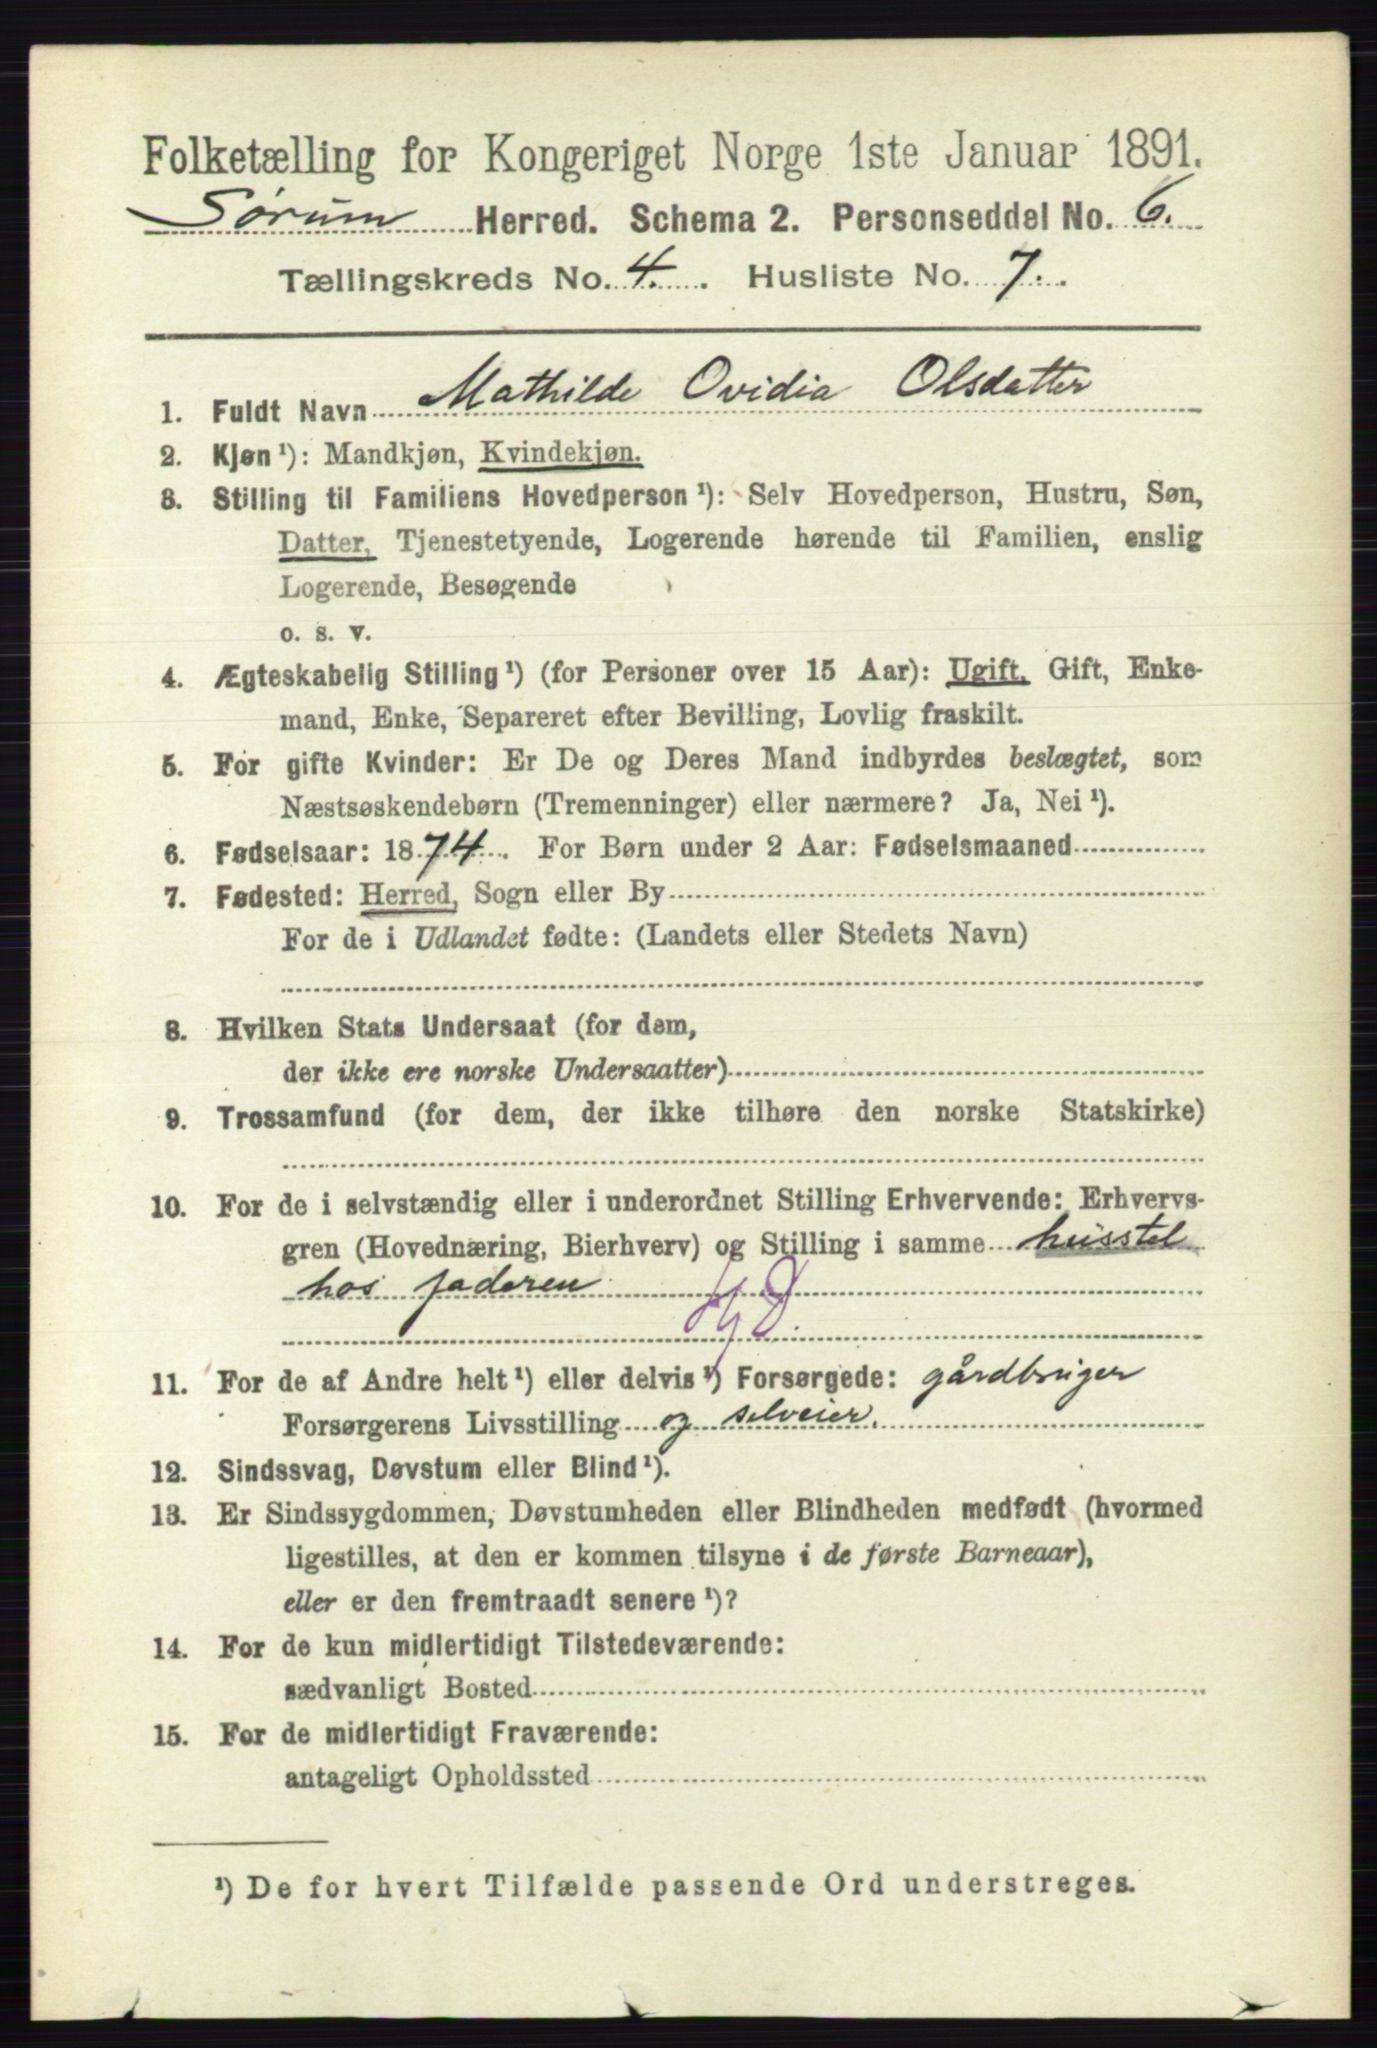 Folketælling for Kongeriget Norge 1ste Januar 1891.
Sørum Herred. Schema 2. Personseddel No. 6.
Tællingskreds No. 4. Husliste No. 7.
1. Fuldt Navn Mathilde Ovidia Olsdatter
2. Kjøn ¹): Mandkjøn, Kvindekjøn.
3. Stilling til Familiens Hovedperson ¹): Selv Hovedperson, Hustru, Søn,
Datter, Tjenestetyende, Logerende hørende til Familien, enslig
Logerende, Besøgende
o. s. v.
4. Ægteskabelig Stilling ¹) (for Personer over 15 Aar): Ugift, Gift, Enke-
mand, Enke, Separeret efter Bevilling, Lovlig fraskilt.
5. For gifte Kvinder: Er De og Deres Mand indbyrdes beslægtet, som
Næstsøskendebørn (Tremenninger) eller nærmere? Ja, Nei ¹).
6. Fødselsaar: 1874. For Børn under 2 Aar: Fødselsmaaned
7. Fødested: Herred, Sogn eller By
For de i Udlandet fødte: (Landets eller Stedets Navn)
8. Hvilken Stats Undersaat (for dem,
der ikke ere norske Undersaatter)
9. Trossamfund (for dem, der ikke tilhøre den norske Statskirke)
10. For de i selvstændig eller i underordnet Stilling Erhvervende: Erhvervs-
gren (Hovednæring, Bierhverv) og Stilling i samme husstel
hos faderen
HjD.
11. For de af Andre helt ¹) eller delvis ¹) Forsørgede: gårdbruger
Forsørgerens Livsstilling og selveier.
12. Sindssvag, Døvstum eller Blind ¹).
13. Er Sindssygdommen, Døvstumheden eller Blindheden medfødt (hvormed
ligestilles, at den er kommen tilsyne i de første Barneaar),
eller er den fremtraadt senere ¹)?
14. For de kun midlertidigt Tilstedeværende:
sædvanligt Bosted
15. For de midlertidigt Fraværende:
antageligt Opholdssted
¹) De for hvert Tilfælde passende Ord understreges.